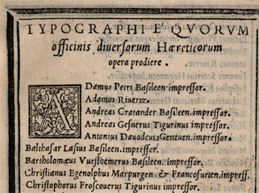 TYPOGRAPHI E QVORVM
officinis diuersorum Hæreticorum
opera prodiere.
ADamus Petri Basileen. impressor.
Adamus Riuerez.
Andreas Cratander Basileen. impressor.
Andreas Gesnerus Tigurinus impressor.
Antonius Dauodeus, Geneuen. impressor.
Balthasar Lasius Basileen. impressor.
Bartholomæus Vuesthemerus Basileen. impressor.
Christianus Egenolphus Marpurgen. & Francofurten. impress.
Christophorus Froscouerus Tigurinus impressor.